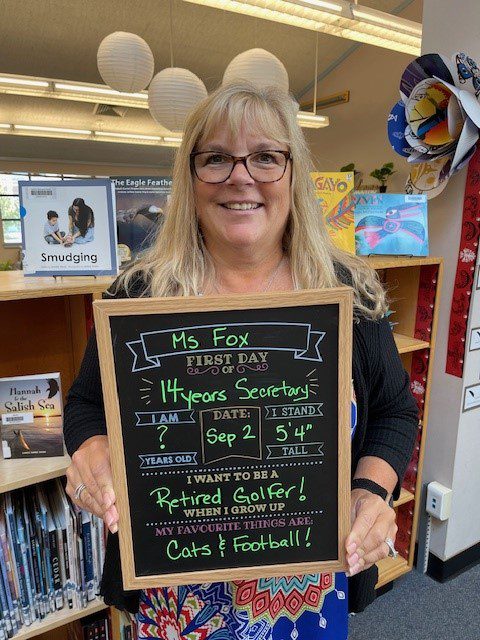 The Eagle Feather
Smudging
GAYO
Hannah & the
Salish Sea
Ms Fox
FIRST DAY
OF
14 years Secretary
I AM
?
YEARS OLD
DATE:
Sep 2
I STAND
5'4"
TALL
I WANT TO BE A
Retired Golfer!
WHEN I GROW UP
MY FAVOURITE THINGS ARE:
Cats & Football!